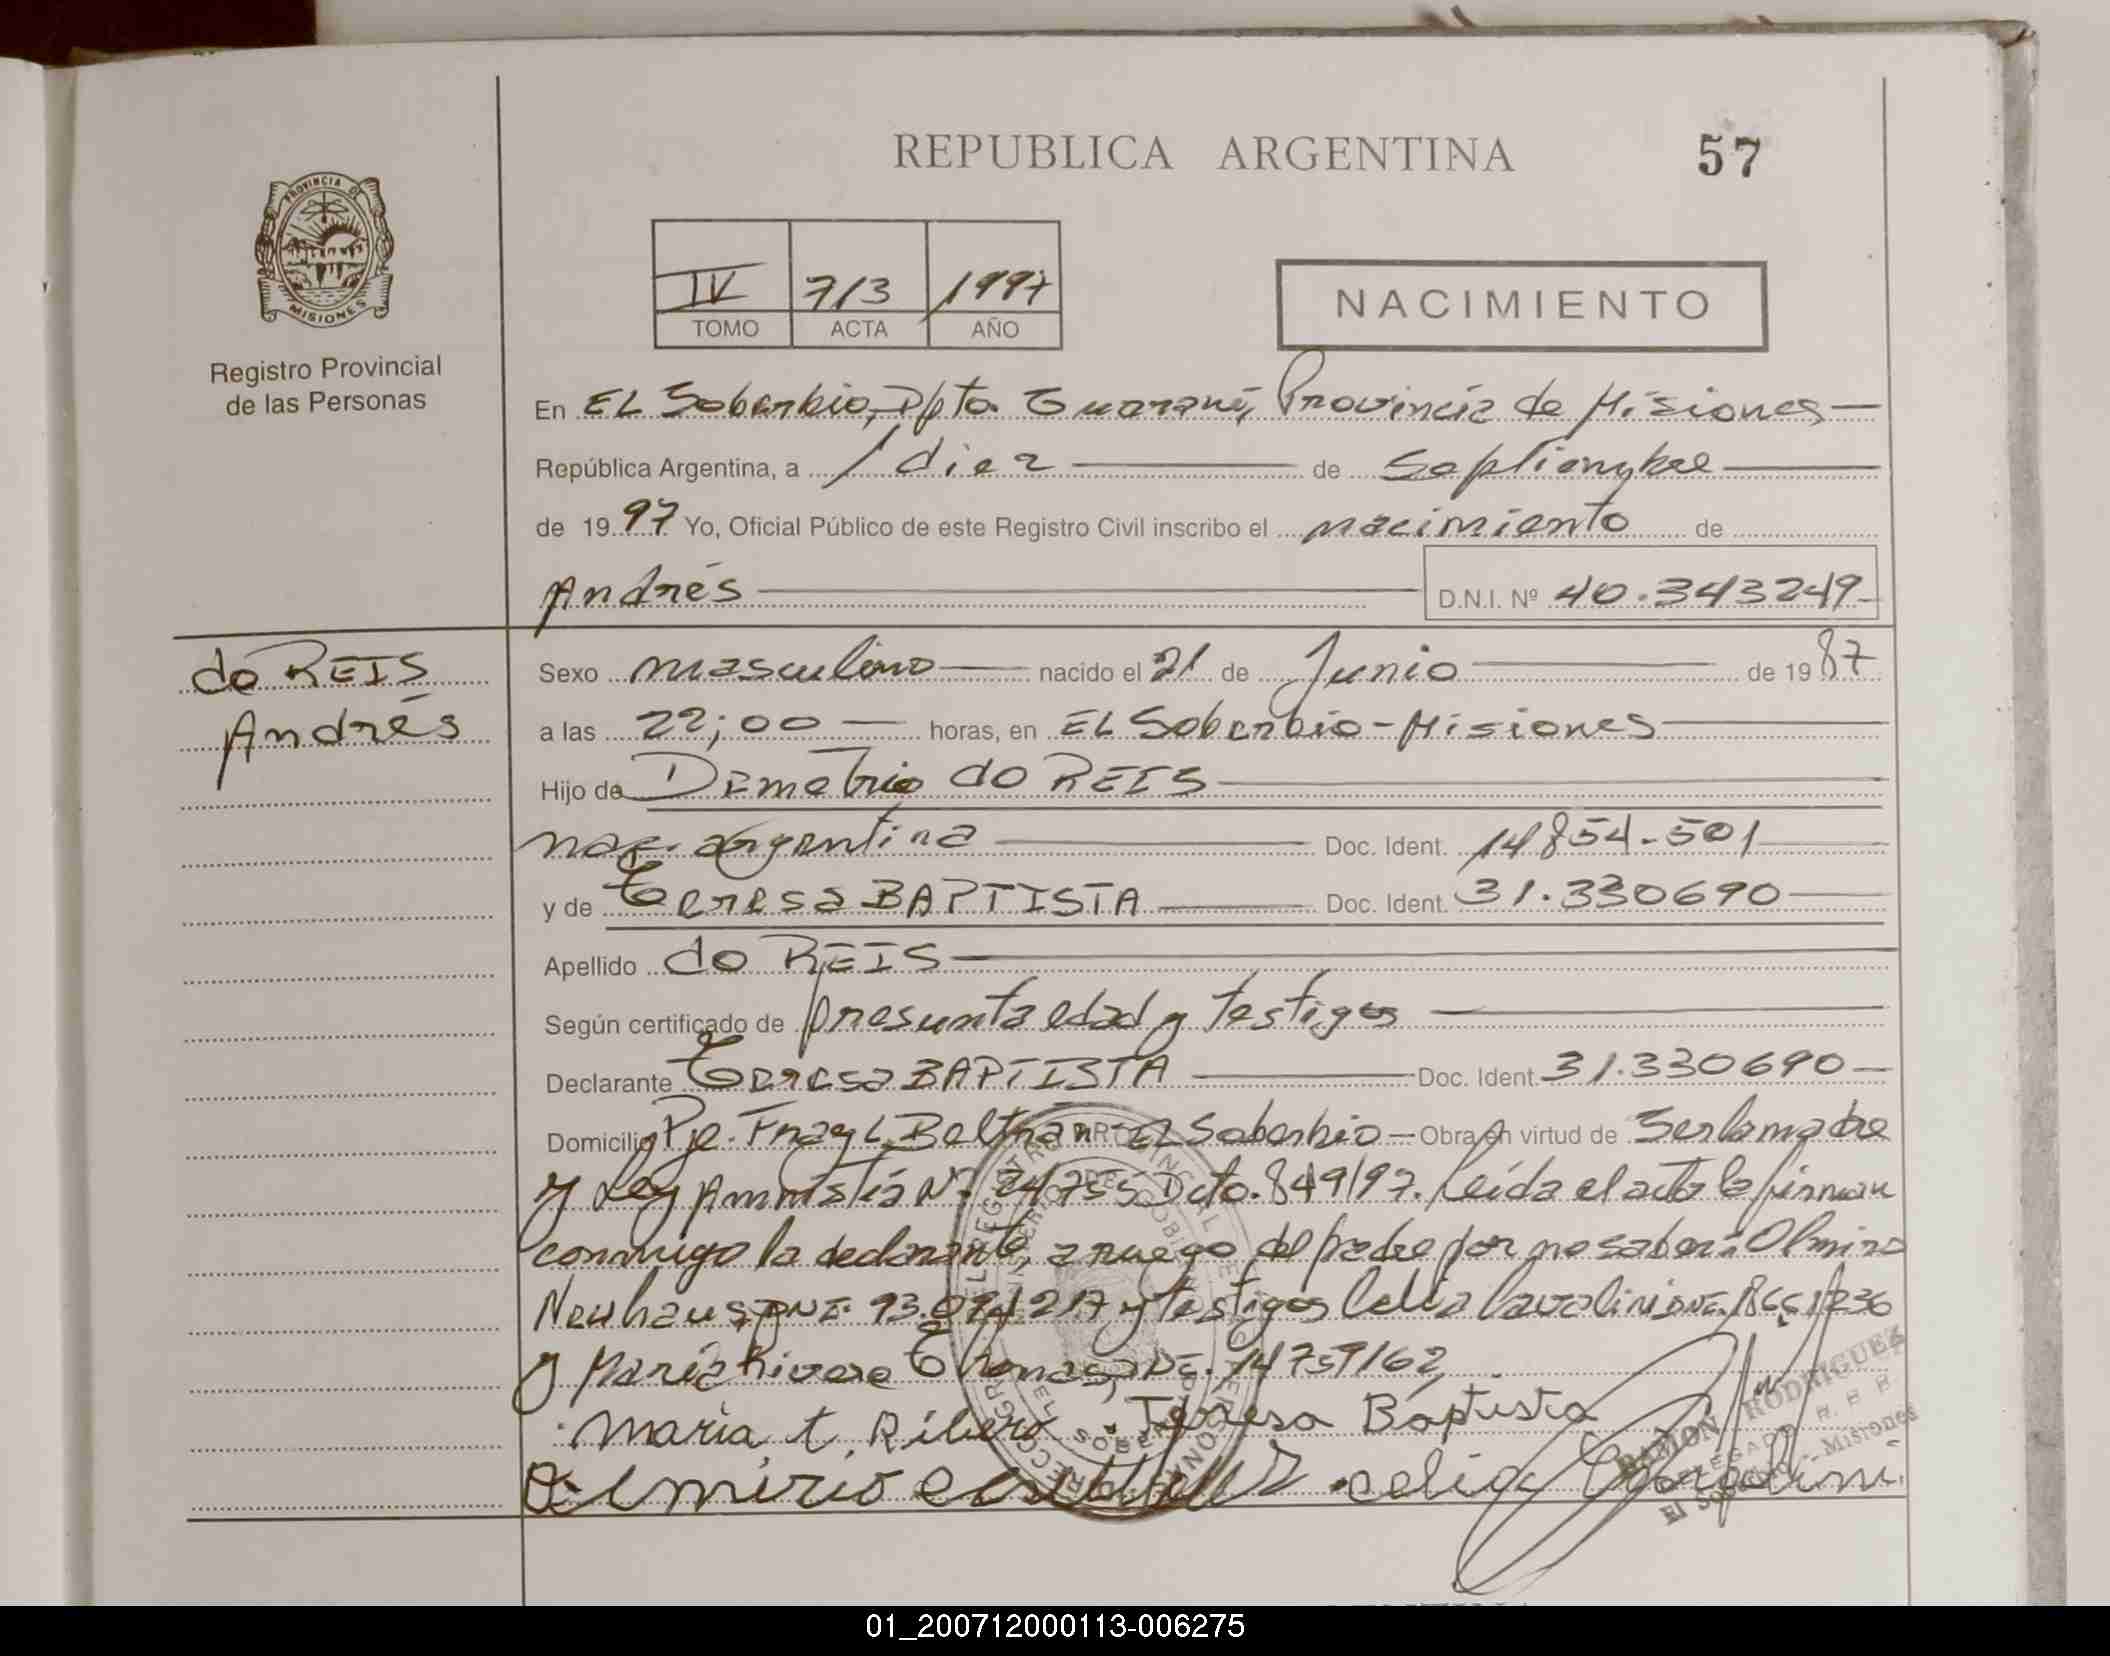 REPUBLICA ARGENTINA
57
PROVINCIA DE
MISIONES
Registro Provincial
de las Personas
IV 713 1997
TOMO ACTA AÑO
NACIMIENTO
En EL Soberbio, Dpto. Guaraní, Provincia de Misiones
República Argentina, a diez de Septiembre
de 1997 Yo, Oficial Público de este Registro Civil inscribo el nacimiento de
Andrés D.N.I. Nº 40.343249
do REIS
Andrés
Sexo masculino nacido el 21 de Junio de 1987
a las 22;00 horas, en EL Soberbio - Misiones
Hijo de Demetrio do REIS
nac. argentina Doc. Ident. 14854.501
y de Teresa BAPTISTA Doc. Ident. 31.330690
Apellido do REIS
Según certificado de presunta edad y testigos
Declarante Teresa BAPTISTA Doc. Ident. 31.330690
Domicilio Pje. Fray L. Beltrán - EL Soberbio - Obra en virtud de Ser la madre
y Ley Amnistía N. 24755 Dcto. 849/97. Leída el acta la firman
conmigo la declarante, a ruego del padre por no saber: Olmiro
Neuhaus, DNI. 93.094217 y testigos Celia
y María Rivero DNI. 14759162
Maria t. Ribero Teresa Baptista
celia
RAMON RODRIGUEZ
DELEGADO
El Soberbio - Misiones
01_200712000113-006275